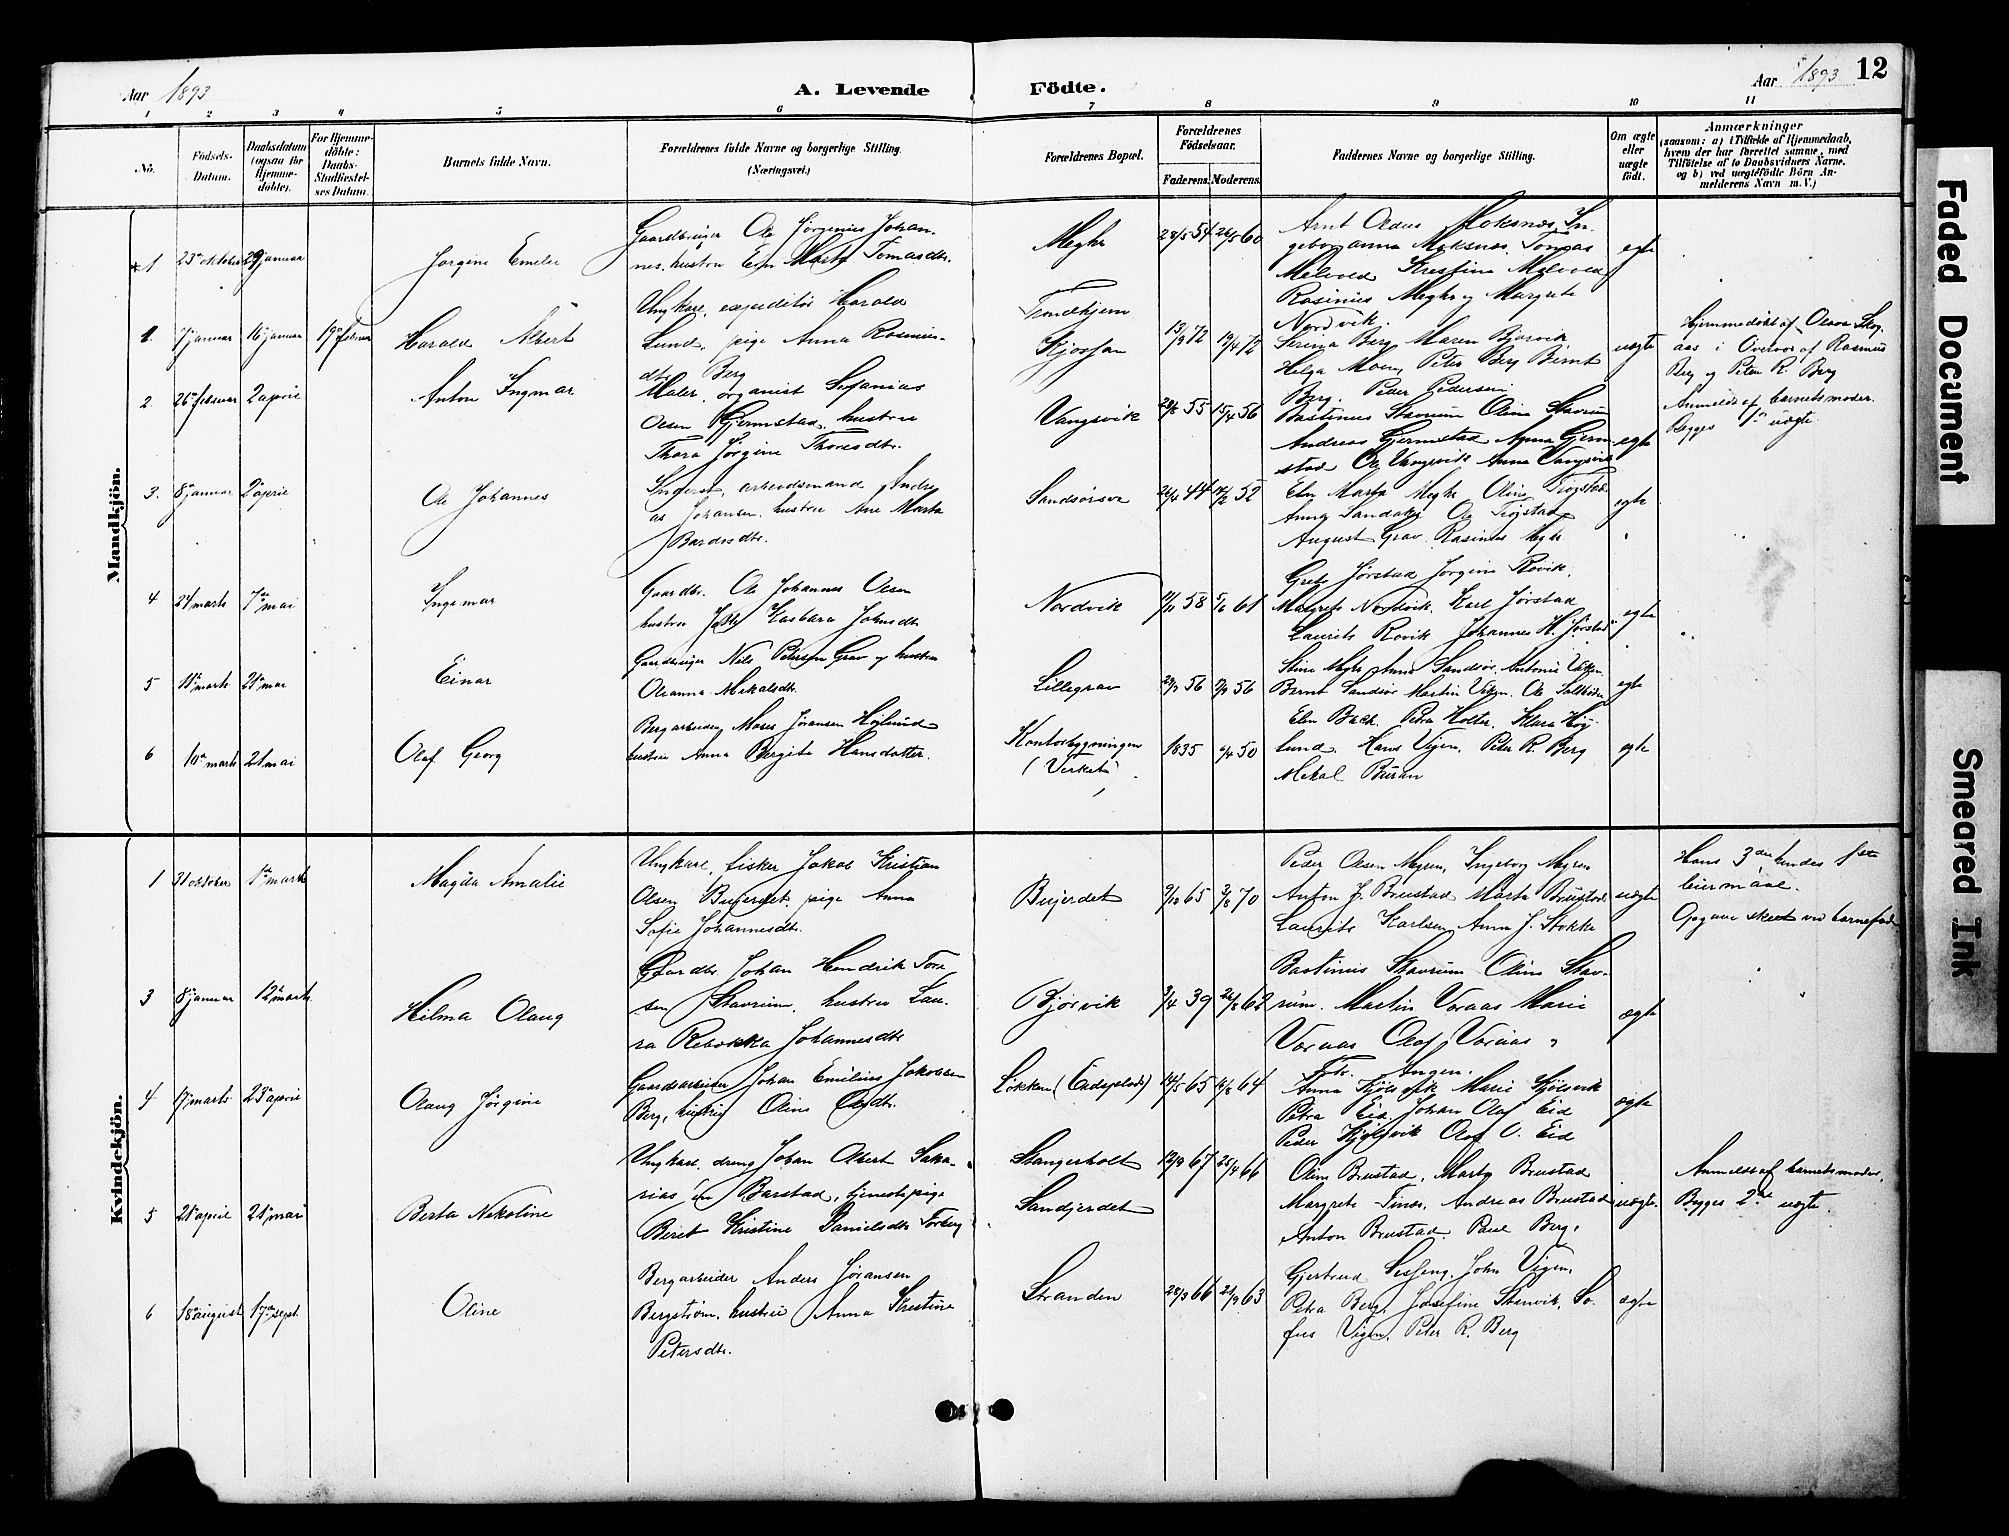 Aar 1893
A. Levende Födte.
Aar 1893 12
1 2 3 4 5 6 7 8 9 10 11
No.
Födsels-Datum.
Daabsdatum (ogsaa for Hjemmedöbte).
For Hjemmedöbte: Daabs-Stadfæstelses Datum.
Barnets fulde Navn.
Forældrenes fulde Navne og borgerlige Stilling.
(Næringsvei.)
Forældrenes Bopæl.
Forældrenes Födselsaar.
Faderens. Moderens.
Faddernes Navne og borgerlige Stilling.
Om ægte eller uægte födt.
Anmærkninger
(saasom: a) i Tilfælde af Hjemmedaab,
hvem der har forrettet samme, med
Tilföielse af to Daabsvidners Navne,
og b) ved uægtefödte Börn An-
melderens Navn m. V.)
Mandkjön.
1 23de oktober 29 januar
Jørgine Emelie
Gaardbruger Ole Jørgenius Johan-
nes. hustru Elen Marta Tomasdtr.
Meghr
28/5 54 26/5 60
Arnt Oldus Moksnes, In-
geborganna Moksnes, Tomas
Melvold Kristine Melvold
Rasinius Meghr og Margrete
Nordvik.
egte
1. 7 januar 16 januar 19de februar
Harald Albert
Ungkarl, expeditør Harald
Lund, pige Anna Rasmus-
dtr. Berg
Trondhjem
13/9 72 19/4 72
Serina Berg Maren Bjørvik
Helga Moen, Peter Berg Bernt
Berg. Peder Pedersen
uægte
Hjemmedøbt af Olava Skog-
aas i Overvær af Rasmus
Berg og Peter R. Berg
Anmeldt af barnets moder.
Begges 1ste uægte.
2. 26 februar 2 april
Anton Ingmar
Maler, organist Sefanias
Olsen Gjermstad, hustru
Thora Jørgine Thoresdtr.
Vangsvik
55 15/4 56
Bastinus Stavrum Oline Stavrum
Andreas Gjermstad Anna Gjerm-
stad Ole Vangsvik Anna Vangsvik
egte
3. 8 januar 2 april
Ole Johannes
arbeidsmand Andre-
as Johansen. hustru Ane Marta
Bardosdtr.
Sandsørsva
44 52
Elen Marta Meghr Oline Trøgstad
Anna Sandaker Ole Trøgstad
August Grav Rasinus Meghr
egte
4 24 marts 7de mai
Ingemar
Gaardbr. Ole Johannes Olsen
hustru Kasbara Johnsdtr.
Nordvik
58 5/6 61
Grete Jørstad Jørgine Rovik,
Margrete Nordvik, Karl Jørstad
Laurits Rovik Johannes H. Jørstad
egte
5 11te marts 21de mai
Einar
Gaardbruger Nils Petersen Grav og hustru
Oleanna Mekalsdtr.
Lillegrav
56 56
Stine Meghr Anne Sandsør Antonie Viken
Bernt Sandsør Martin Viken. Ole
egte
6 10de marts 21 mai
Olaf Georg
Bergarbeider Moses Jøransen Højlund
hustru Anna Bergite Hansdatter
Kontorbygningen
(Verket)
1835 6/4 50
Elen Bach. Petra Holter. Klara Høj-
lund. Hans Vigen, Peter R. Berg
Mekal Buran
egte
Kvindekjön.
1 31 oktober 1ste marts
Magda Amalie
Ungkarl, fisker Jakob Kristian
Olsen Bujerdet, pige Anna
Sofie Johannesdtr.
Bujerdet
9/10 65 2/8 70
Peder Olsen Myren, Ingeborg Myren
Anton J. Brustad Marta Brustad
Laurits Karlsen Anna J. Stokke
uægte
Hans 3die hendes 1ste
leiermaal.
Opgave skeet ved barnefad.
3 8 januar 12te marts
Hilma Olaug
Gaardbr. Johan Hendrik Tora-
sen Stavrum, hustru Lau-
ra Rebekka Johannesdtr
Bjørvik
3/4 39 26/8 62
Bastinus Stavrum Oline Stav-
rum. Martin Voraas Marie
Voraas Olaf Voraas
egte
4 17 marts 23de april
Olaug Jørgine
Gaardsarbeider Johan Emilius Jakobsen
Berg, hustru Oline Olsdtr.
Løkken (Eidsplads)
14/5 65 16/8 64
Anna Kjølsvik Marie Kjølsvik
Petra Eid, Johan Olaf Eid
Peder Kjølsvik Olaf O. Eid
egte
5 21de april 21de mai
Berta Nikoline
Ungkarl, dreng Johan Albert Saka-
riassen Barstad, tjenestepige
Berit Kristine Danielsdtr Forberg
Stangerholt
Sandjerdet
12/9 67 25/4 66
Oline Brustad, Marta Brustad
Margrete Andreas Brustad
Anton Brustad. Paul Berg.
uægte.
Anmeldt af barnets moder.
Begges 2de uægte.
6 18de august 17de sept
Oline
Bergarbeider Anders Jøransen
Bergstrøm, hustru Anna Kristine
Petersdtr.
Stranden
28/3 66 21/9 63
Gjertrud John Vigen,
Petra Berg, Josefine Stenvik, So-
fus Vigen, Peter R. Berg
ægte
Faded Document
Smeared Ink